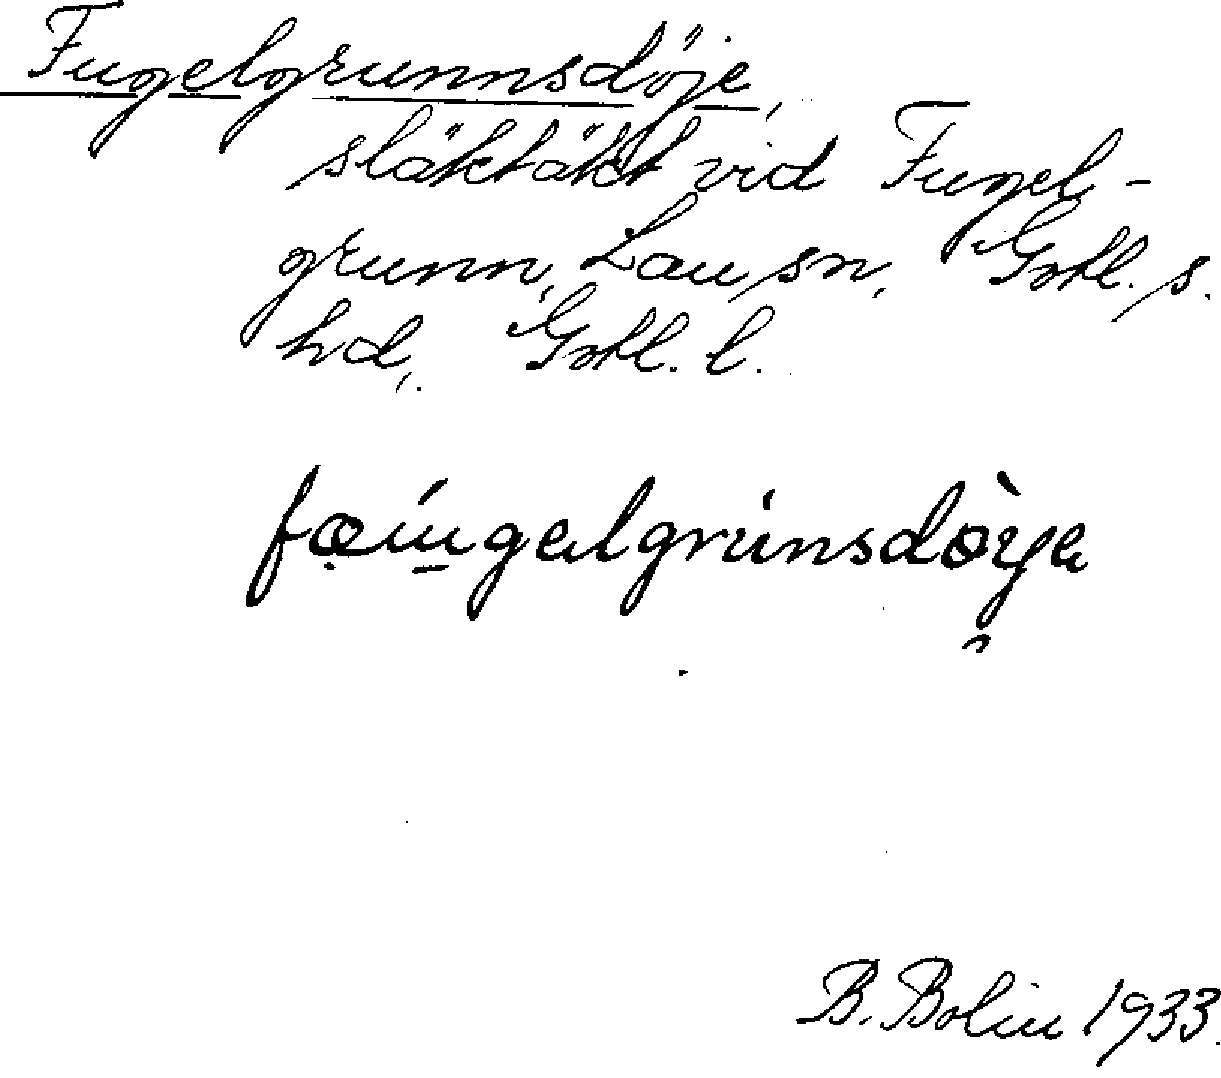 Fugelgrunnsdöje,
släktäkt vid Fugel-
grunn, Lau sn, Gotl. s.
hd, Gotl. l.
B. Bolin 1933.